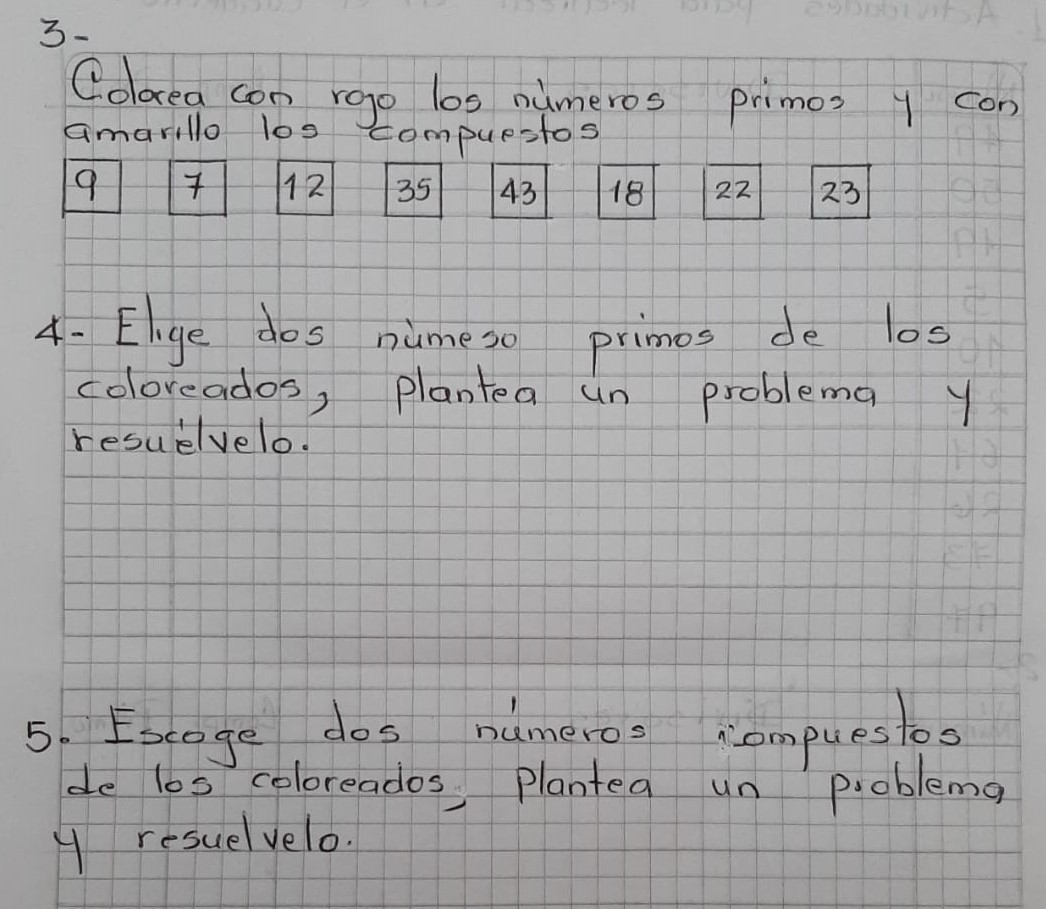 3-
Colorea con rojo los números primos y con
amarillo los compuestos
9 7 12 35 43 18 22 23
4- Elige dos númeso primos de los
coloreados, plantea un problema y
resuélvelo.
5. Escoge dos números compuestos
de los coloreados, plantea un problema
y resuelvelo.